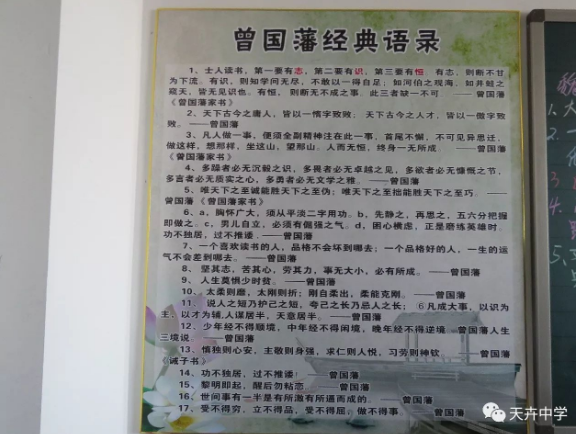 曾国藩经典语录
1、士人读书，第一要有志，第二要有识，第三要有恒。有志，则断不甘
为下流。有识，则知学问无尽，不敢以一得自足；如河伯之观海，如井蛙之
窥天，皆无见识也。有恒，则断无不成之事，此三者缺一不可。——曾国藩
《曾国藩家书》
2、天下古今之庸人，皆以一惰字致败；天下古今之人才，皆以一傲字致
败。——曾国藩
3、凡人做一事，便须全副精神注在此一事，首尾不懈，不可见异思迁，
做这样，想那样，坐这山，望那山。人而无恒，终身一无所成。——曾国藩
《曾国藩家书》
4、多躁者必无沉毅之识，多畏者必无卓越之见，多欲者必无慷慨之节，
多言者必无质实之心，多勇者必无文学之雅。——曾国藩
5、唯天下之至诚能胜天下之至伪；唯天下之至拙能胜天下之至巧。——
曾国藩《曾国藩家书》
6、a，胸怀广大，须从平淡二字用功。b，先静之，再思之，五六分把握
即做之。c，男儿自立，必须有倔强之气。d，困心横虑，正是磨练英雄时。
功不独居，过不推诿。——曾国藩
7、一个喜欢读书的人，品格不会坏到哪去；一个品格好的人，一生的运
气不会差到哪去。——曾国藩
8、坚其志，苦其心，劳其力，事无大小，必有所成。——曾国藩
9、人生莫惧少时贫。——曾国藩
10、太柔则靡，太刚则折；刚自柔出，柔能克刚。——曾国藩
11、说人之短乃护己之短，夸己之长乃忌人之长；⑥凡成大事，以识为
主，以才为辅，人谋居半，天意居半。——曾国藩
12、少年经不得顺境，中年经不得闲境，晚年经不得逆境。曾国藩人生
三境说。——曾国藩
13、慎独则心安，主敬则身强，求仁则人悦，习劳则神钦。——曾国藩
《诫子书》
14、功不独居，过不推诿！——曾国藩
15、黎明即起，醒后勿粘恋。——曾国藩
16、世间事有一半是有所激有所逼而成的。——曾国藩
17、受不得穷，立不得品，受不得屈，做不得事。——曾国藩
1.大
2.一
3.
4.
5.
天卉中学